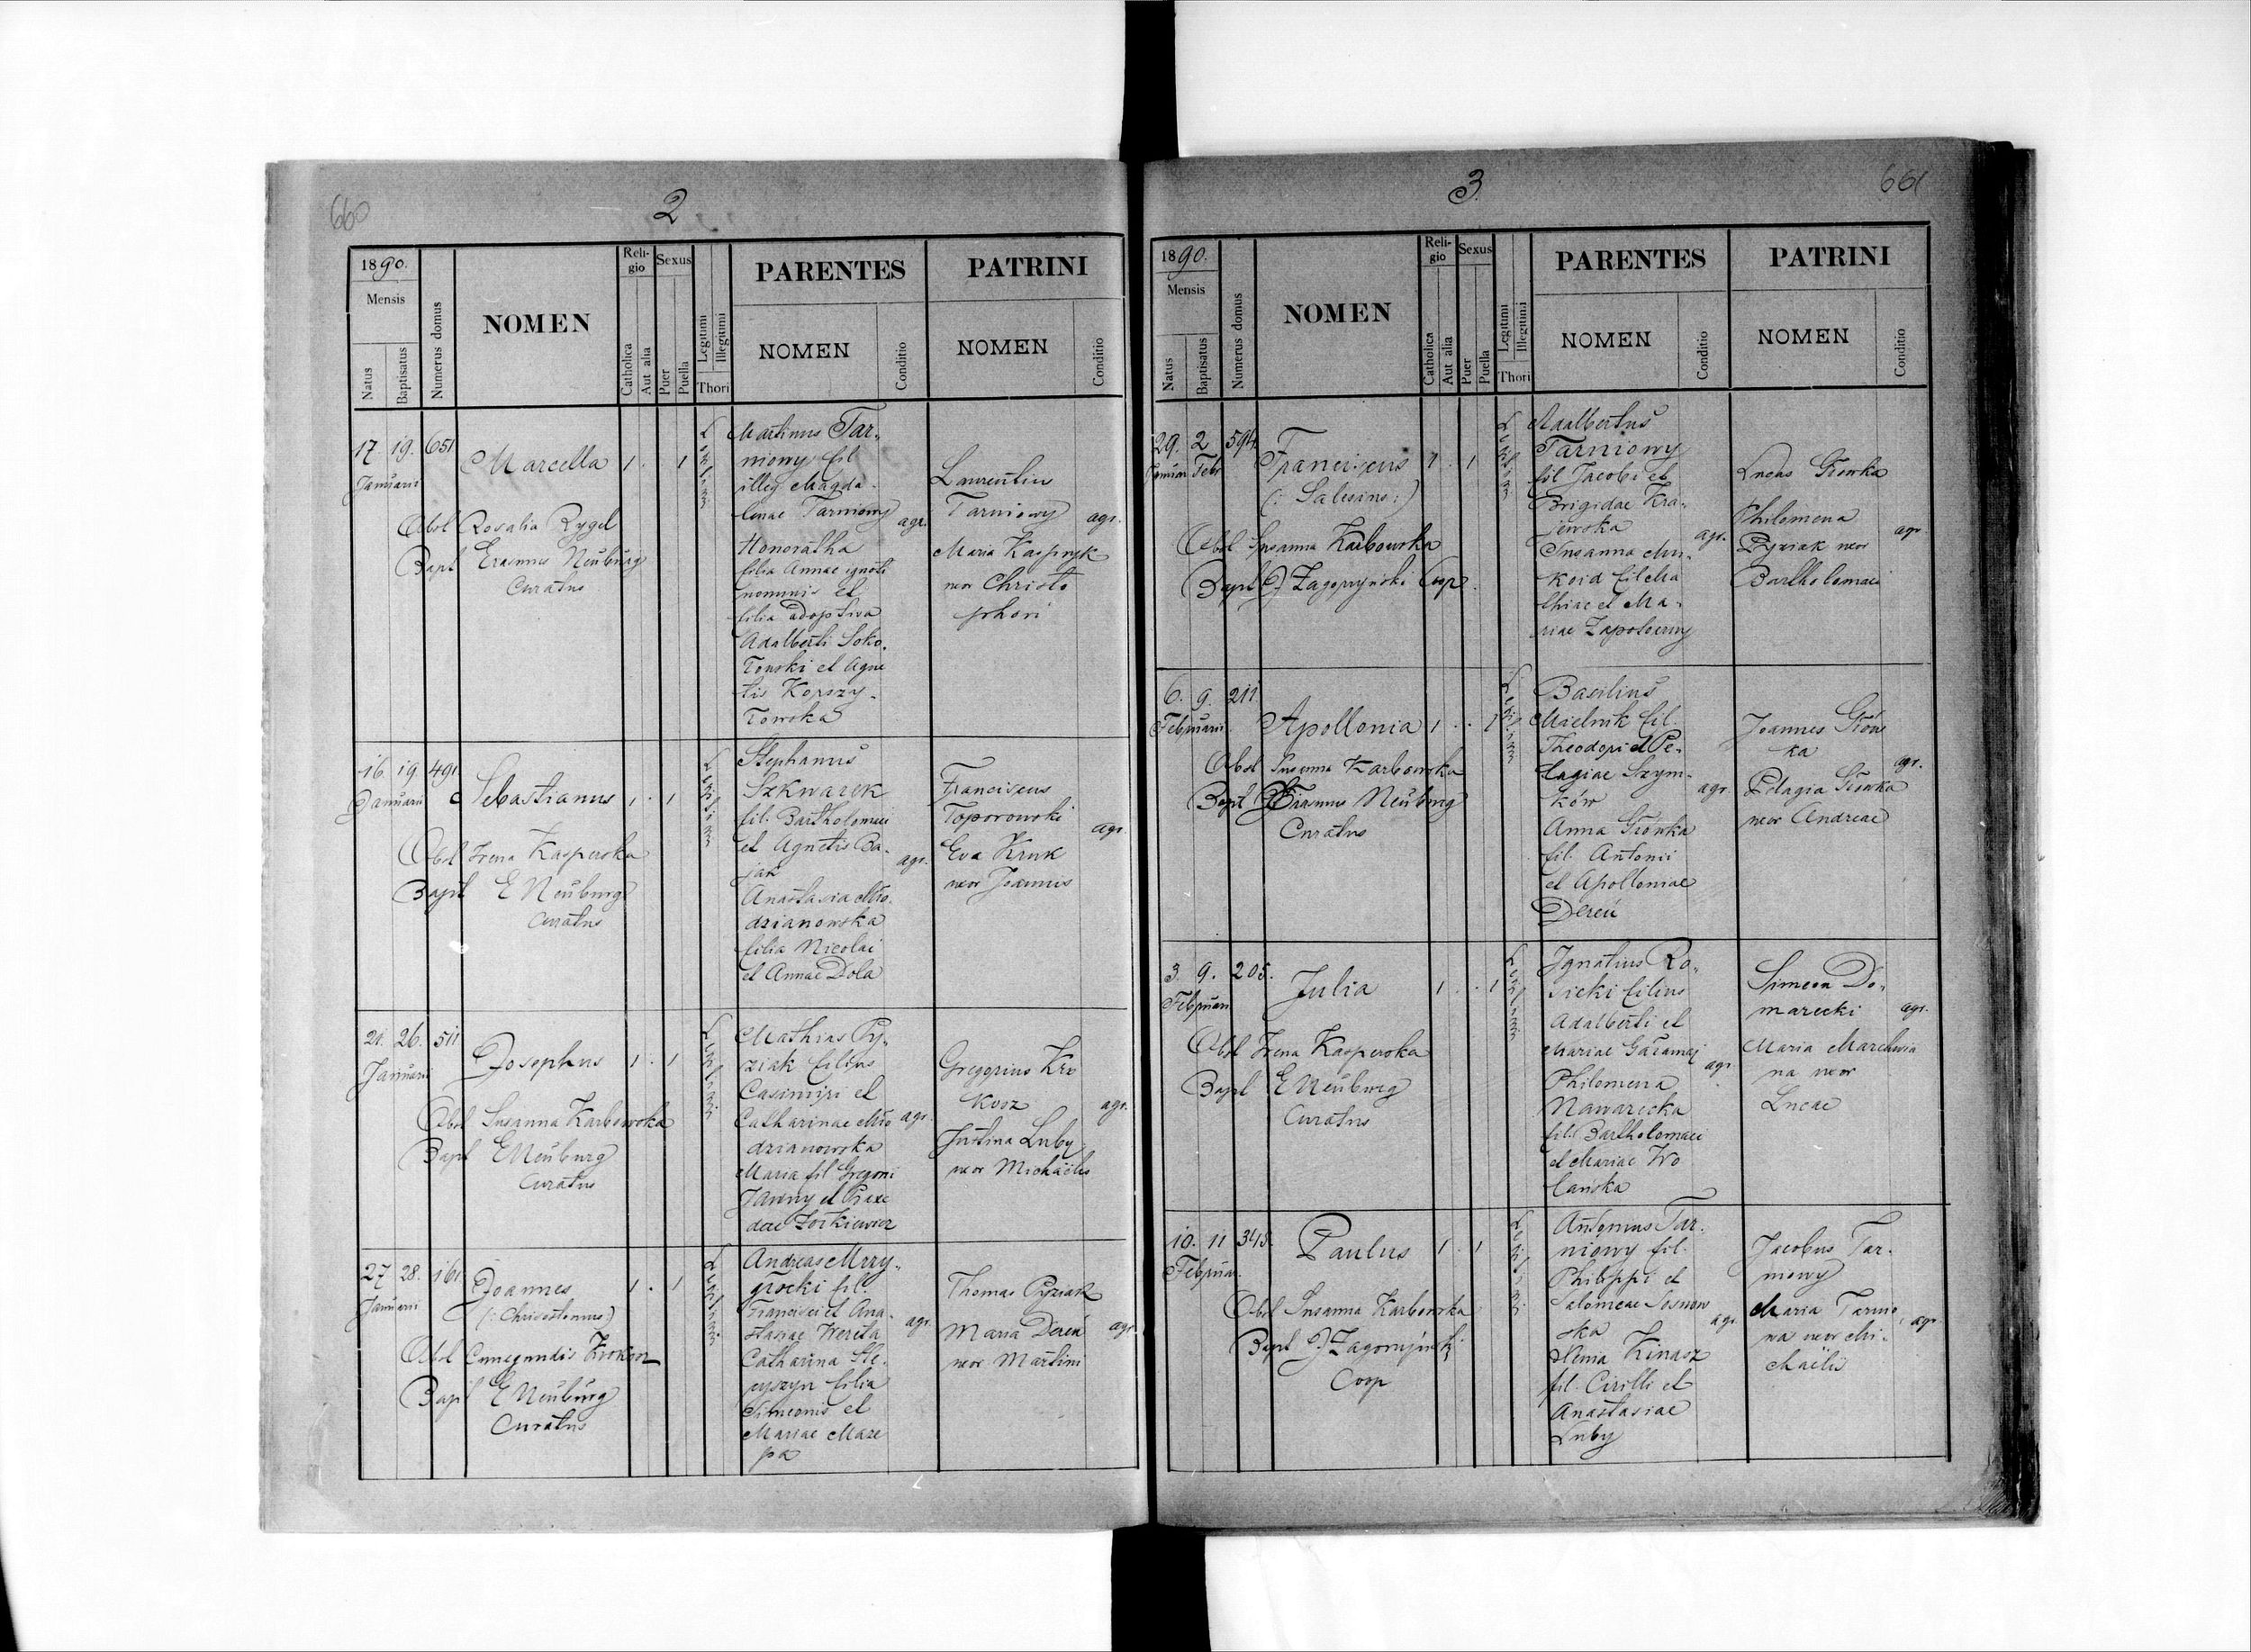 660
2
1890.
Mensis
Natus
Baptisatus
Numerus domus
NOMEN
Reli-
gio
Catholica
Aut alia
Sexus
Puer
Puella
Legitimi
Illegitimi
Thori
PARENTES
NOMEN
Conditio
PATRINI
NOMEN
Conditio
17. 19. 651
Januarii
Marcella 1 . 1
Obst Rosalia Rygel
Bapt Erasmus Neuburg
Curatus
Legitimi
Martinus Tar-
niowy fil
illeg Magda-
lenae Tarniowy
Honoratha
filia Annae ignoti
nominis et
filia adoptiva
Adalberti Soko-
łowski et Agne
tis Korszy-
łowska
agr.
Laurentius
Tarniowy
Maria Kasprzyk
uxor Christo
phori
agr.
16. 19. 491
Januarii c
Sebastianus 1 . 1
Obst Irena Kasperska
Bapt E Neuburg
Curatus
Legitimi
Stephanus
Szkwarek
fil. Bartholomaei
et Agnetis Ba-
jak
Anastasia Mło-
dzianowska
filia Nicolai
et Annae Dola
agr.
Franciscus
Toporowski
Eva Kruk
uxor Joannis
agr.
21. 26. 511
Januarii
Josephus 1 . 1
Obst Susanna Karbowska
Bapt E Neuburg
Curatus
Legitimi
Mathias Py-
ziak filius
Casimiri et
Catharinae Mło
dzianowska
Maria fil Gregorii
Jawny et Praxe
dae
agr.
Gregorius Kro
kosz
Justina Luby
uxor Michaëlis
agr.
27 28. 161
Januarii
Joannes 1 . 1
(: Chrisostomus)
Obst Cunegundis Krokosz
Bapt E Neuburg
Curatus
Legitimi
Andreas Mrzy-
głocki fil.
Francisci et Ana-
stasiae Wereta
Catharina Ste-
cyszyn filia
Simeonis et
Mariae Maze
pa
agr.
Thomas Pyziak
Maria Dereń
uxor Martini
agr
3.
661
1890.
Mensis
Natus
Baptisatus
Numerus domus
NOMEN
Reli-
gio
Catholica
Aut alia
Sexus
Puer
Puella
Legitimi
Illegitimi
Thori
PARENTES
NOMEN
Conditio
PATRINI
NOMEN
Conditio
29. 2 594.
Januar Febr
Franciscus 1 . 1
(: Salesius :)
Obst Susanna Karbowska
Bapt J Zagorzyński Coop.
Legitimi
Adalbertus
Tarniowy
fil Jacobi et
Brigidae Kra-
jewska
Susanna
fil Ma
thiae et Ma-
riae
agr.
Lucas Główka
Philomena
Pyziak uxor
Bartholomaei
agr
6. 9. 211
Februarii
Apollonia 1 . . 1
Obst Susanna Karbowska
Bapt Erasmus Neuburg
Curatus
Legitimi
Basilius
Mielnik fil.
Theodori et Pe-
lagiae Szym-
ków
Anna Główka
fil. Antonii
et Apolloniae
Dereń
agr
Joannes Głów
ka
Pelagia Główka
uxor Andreae
agr.
3 9. 205.
Februarii
Julia 1 . . 1
Obst Irena Kasperska
Bapt E Neuburg
Curatus
Legitimi
Ignatius Ro-
sicki filius
Adalberti et
Mariae Gałamaj
Philomena
Nawarecka
fil. Bartholomaei
et Mariae Wo
lańska
agr.
Simeon Do-
marecki
Maria Marchwia
na uxor
Lucae
agr.
10. 11 345.
Februar.
Paulus 1 . 1
Obst Susanna Karbowska
Bapt J Zagorzyński
Coop
Legitimi
Antonius Tar-
niowy fil.
Philippi et
Salomeae Sosnow
ska
Xenia Kinasz
fil. Cirilli et
Anastasiae
Luby
agr.
Jacobus Tar-
niowy
Maria Tarnio
wa uxor Mi-
chaëlis
agr